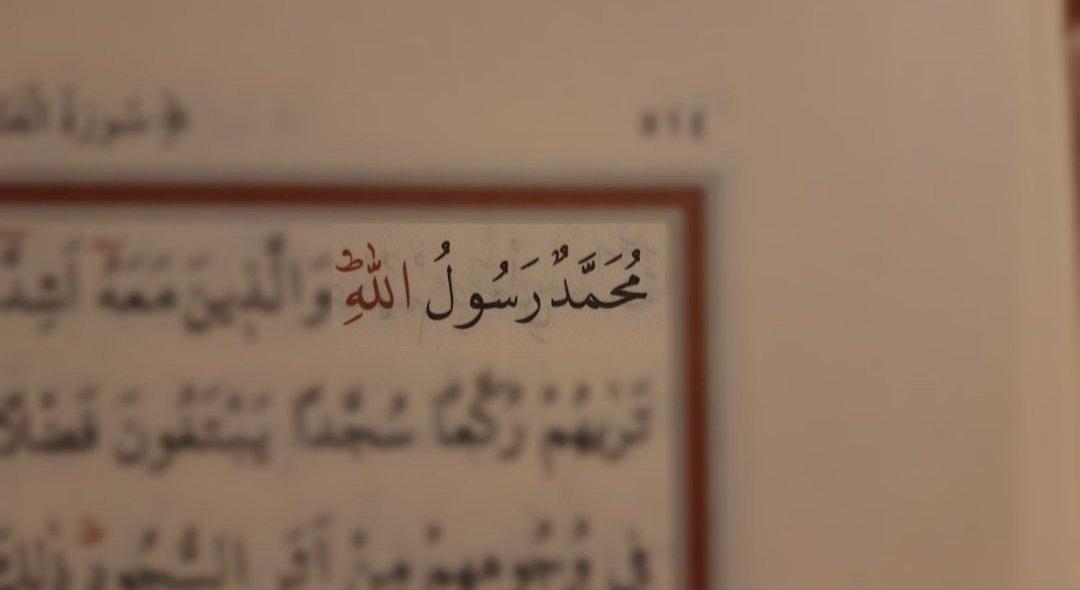 ٥١٤ ﴿سُورَةُ
مُحَمَّدٌ رَسُولُ اللّٰهِؕ وَالَّذِينَ مَعَهُٓ
تَرٰيهُمْ رُكَّعًا سُجَّدًا يَبْتَغُونَ فَضْلًا
فِي وُجُوهِهِمْ مِنْ اَثَرِ السُّجُودِؕ ذٰلِكَ